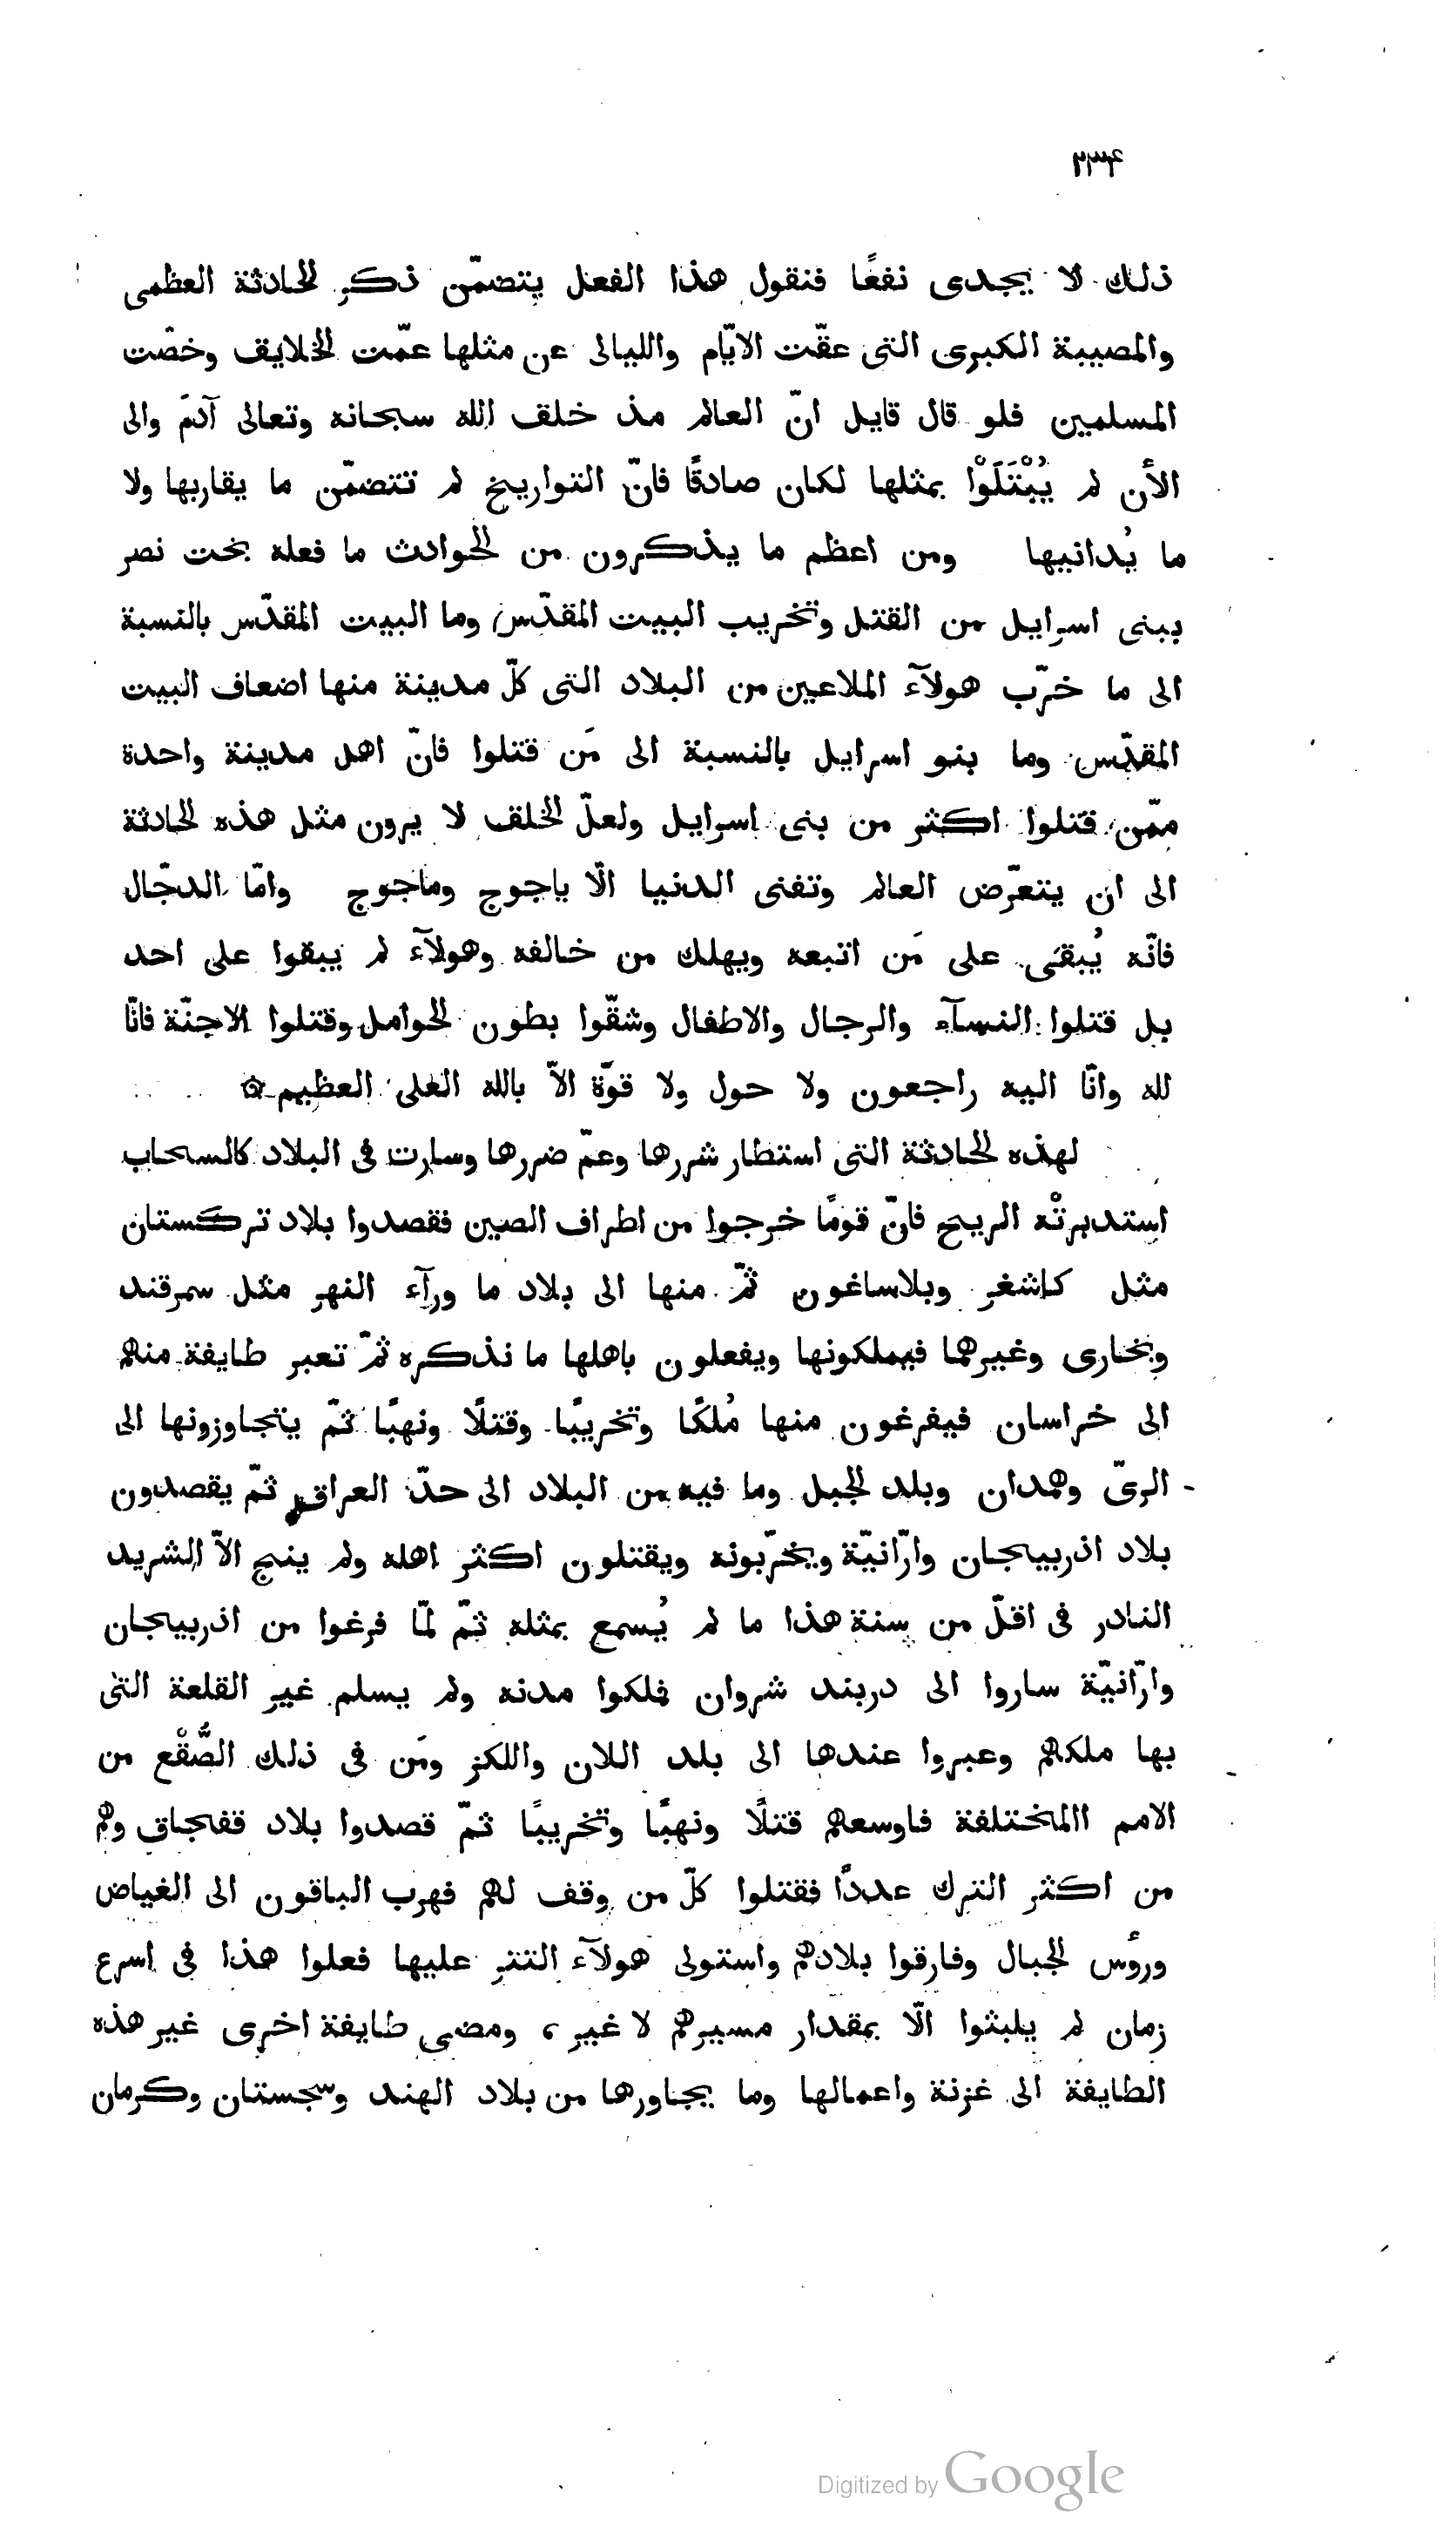 ٢٣۴
ذلك لا يجدى نفعًا فنقول هذا الفعل يتضمّن ذكر الحادثة العظمى
والمصيبة الكبرى التى عقّت الايّام والليالى عن مثلها عمّت الخلايق وخصّت
المسلمين فلو قال قايل انّ العالم مذ خلق الله سبحانه وتعالى آدمَ والى
الأن لم يُبْتَلَوْا بمثلها لكان صادقًا فانّ التواريخ لم تتضمّن ما يقاربها ولا
ما يُدانيها ومن اعظم ما يذكرون من الحوادث ما فعله بخت نصر
ببنى اسرايل من القتل وتخريب البيت المقدّس وما البيت المقدّس بالنسبة
الى ما خرّب هولآء الملاعين من البلاد التى كلّ مدينة منها اضعاف البيت
المقدّس وما بنو اسرايل بالنسبة الى مَن قتلوا فانّ اهل مدينة واحدة
ممّن قتلوا اكثر من بنى اسرايل ولعلّ الخلق لا يرون مثل هذه الحادثة
الى ان ينتعرّض العالم وتفنى الدنيا الّا ياجوج وماجوج وامّا الدجّال
فانّه يُبقى على مَن اتبعه ويهلك من خالفه وهولآء لم يبقوا على احد
بل قتلوا النسآء والرجال والاطفال وشقّوا بطون الحوامل وقتلوا الاجنّة فانّا
لله وانّا اليه راجعون ولا حول ولا قوّة الاّ بالله العلى العظيم ۞
لهذه الحادثة التى استطار شررها وعمّ ضررها وسارت فى البلاد كالسحاب
استدبرتْه الريح فانّ قومًا خرجوا من اطراف الصين فقصدوا بلاد تركستان
مثل كاشغر وبلاساغون ثمّ منها الى بلاد ما ورآء النهر مثل سمرقند
وبخارى وغيرهما فيملكونها ويفعلون باهلها ما نذكره ثمّ تعبر طايفة منهم
الى خراسان فيفرغون منها مُلكًا وتخريبًا وقتلًا ونهبًا ثمّ يتجاوزونها الى
الرىّ وهمدان وبلد الجبل وما فيه من البلاد الى حدّ العراق ثمّ يقصدون
بلاد اذربيجان وارّانيّة ويخرّبونه ويقتلون اكثر اهله ولم ينج الاّ الشريد
النادر فى اقلّ من سنة هذا ما لم يُسمع بمثله ثمّ لمّا فرغوا من اذربيجان
وارّانيّة ساروا الى دربند شروان فملكوا مدنه ولم يسلم غير القلعة التى
بها ملكهم وعبروا عندها الى بلد اللان واللكز ومَن فى ذلك الصُّقْع من
الامم االمختلفة فاوسعهم قتلًا ونهبًا وتخريبًا ثمّ قصدوا بلاد قفجاق وهم
من اكثر الترك عددًا فقتلوا كلّ من وقف لهم فهرب الباقون الى الغياض
وروُس الجبال وفارقوا بلادهم واستولى هولآء التتر عليها فعلوا هذا فى اسرع
زمان لم يلبثوا الّا بمقدار مسيرهم لا غير، ومضى طايفة اخرى غير هذه
الطايفة الى غزنة واعمالها وما يجاورها من بلاد الهند وسجستان وكرمان
Digitized by Google